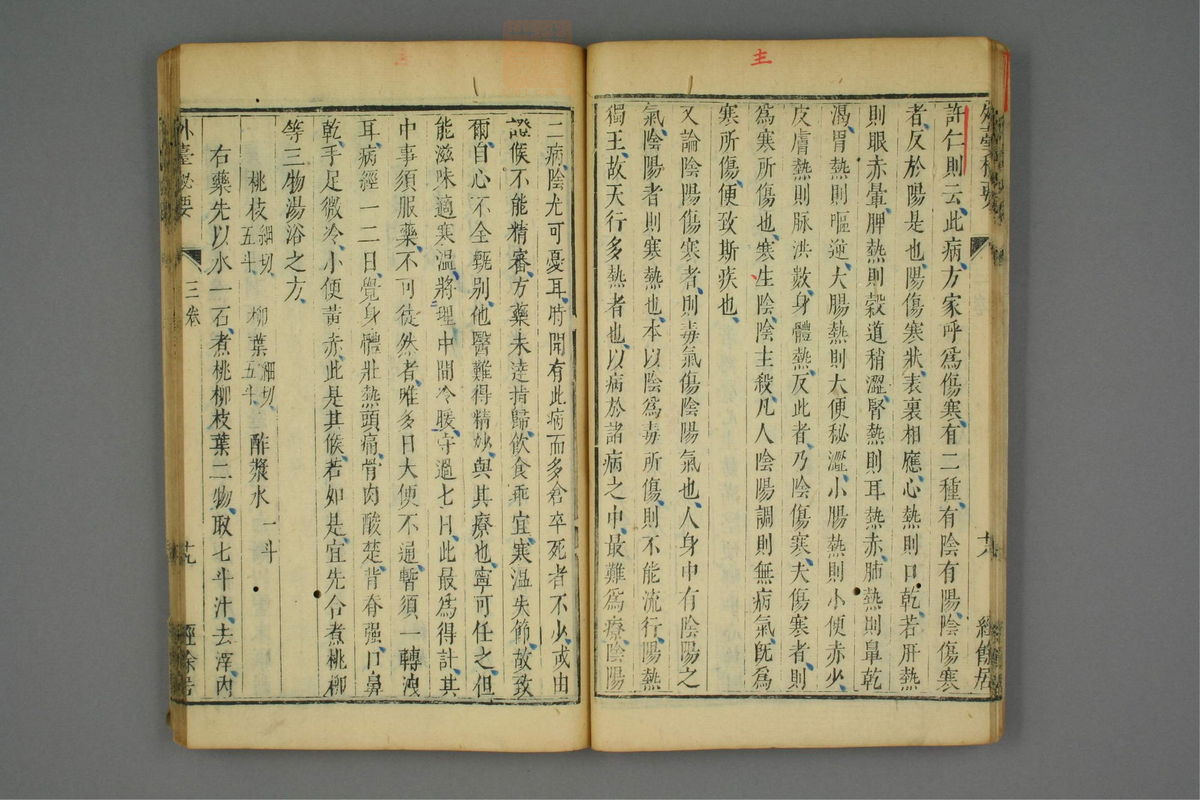 主
外臺秘要
卄八
經餘居
許仁則云此病方家呼爲傷寒有二種有陰有陽陰傷寒
者反於陽是也陽傷寒狀表裏相應心熱則口乾若肝熱
則眼赤暈脾熱則穀道稍澀腎熱則耳熱赤肺熱則鼻乾
渴胃熱則嘔逆大腸熱則大便秘澀小腸熱則小便赤少
皮膚熱則脉洪數身體熱反此者乃陰傷寒夫傷寒者則
爲寒所傷也寒生陰陰主殺凡人陰陽調則無病氣旣爲
寒所傷便致斯疾也
又論陰陽傷寒者則毒氣傷陰陽氣也人身中有陰陽之
氣陰陽者則寒熱也本以陰爲毒所傷則不能流行陽熱
獨王故天行多熱者也以病於諸病之中最難爲療陰陽
二病陰尤可憂耳時開有此病而多倉卒死者不少或由
證候不能精審方藥未達指歸飲食乖宜寒温失節故致
爾自心不全甄别他醫難得精妙與其療也寧可任之但
能滋味適寒温將理中間冷暖守過七日此最爲得計其
中事須服藥不可徒然者唯多日大便不通暫須一轉洩
耳病經一二日覺身體壯熱頭痛骨肉酸楚背脊强口鼻
乾手足微冷小便黃赤此是其候若如是宜先合煮桃柳
等三物湯浴之方
桃枝細切五斗 柳葉細切五斗 酢漿水一斗
右藥先以水一石煮桃柳枝葉二物取七斗汁去滓内
外臺秘要
三卷
卄九
經餘居